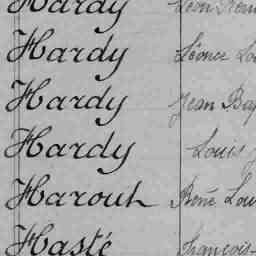 Hardy Léon Rem
Hardy Léonce Lou
Hardy Jean Bap
Hardy Louis
Harouh René Lou
Hasté François-